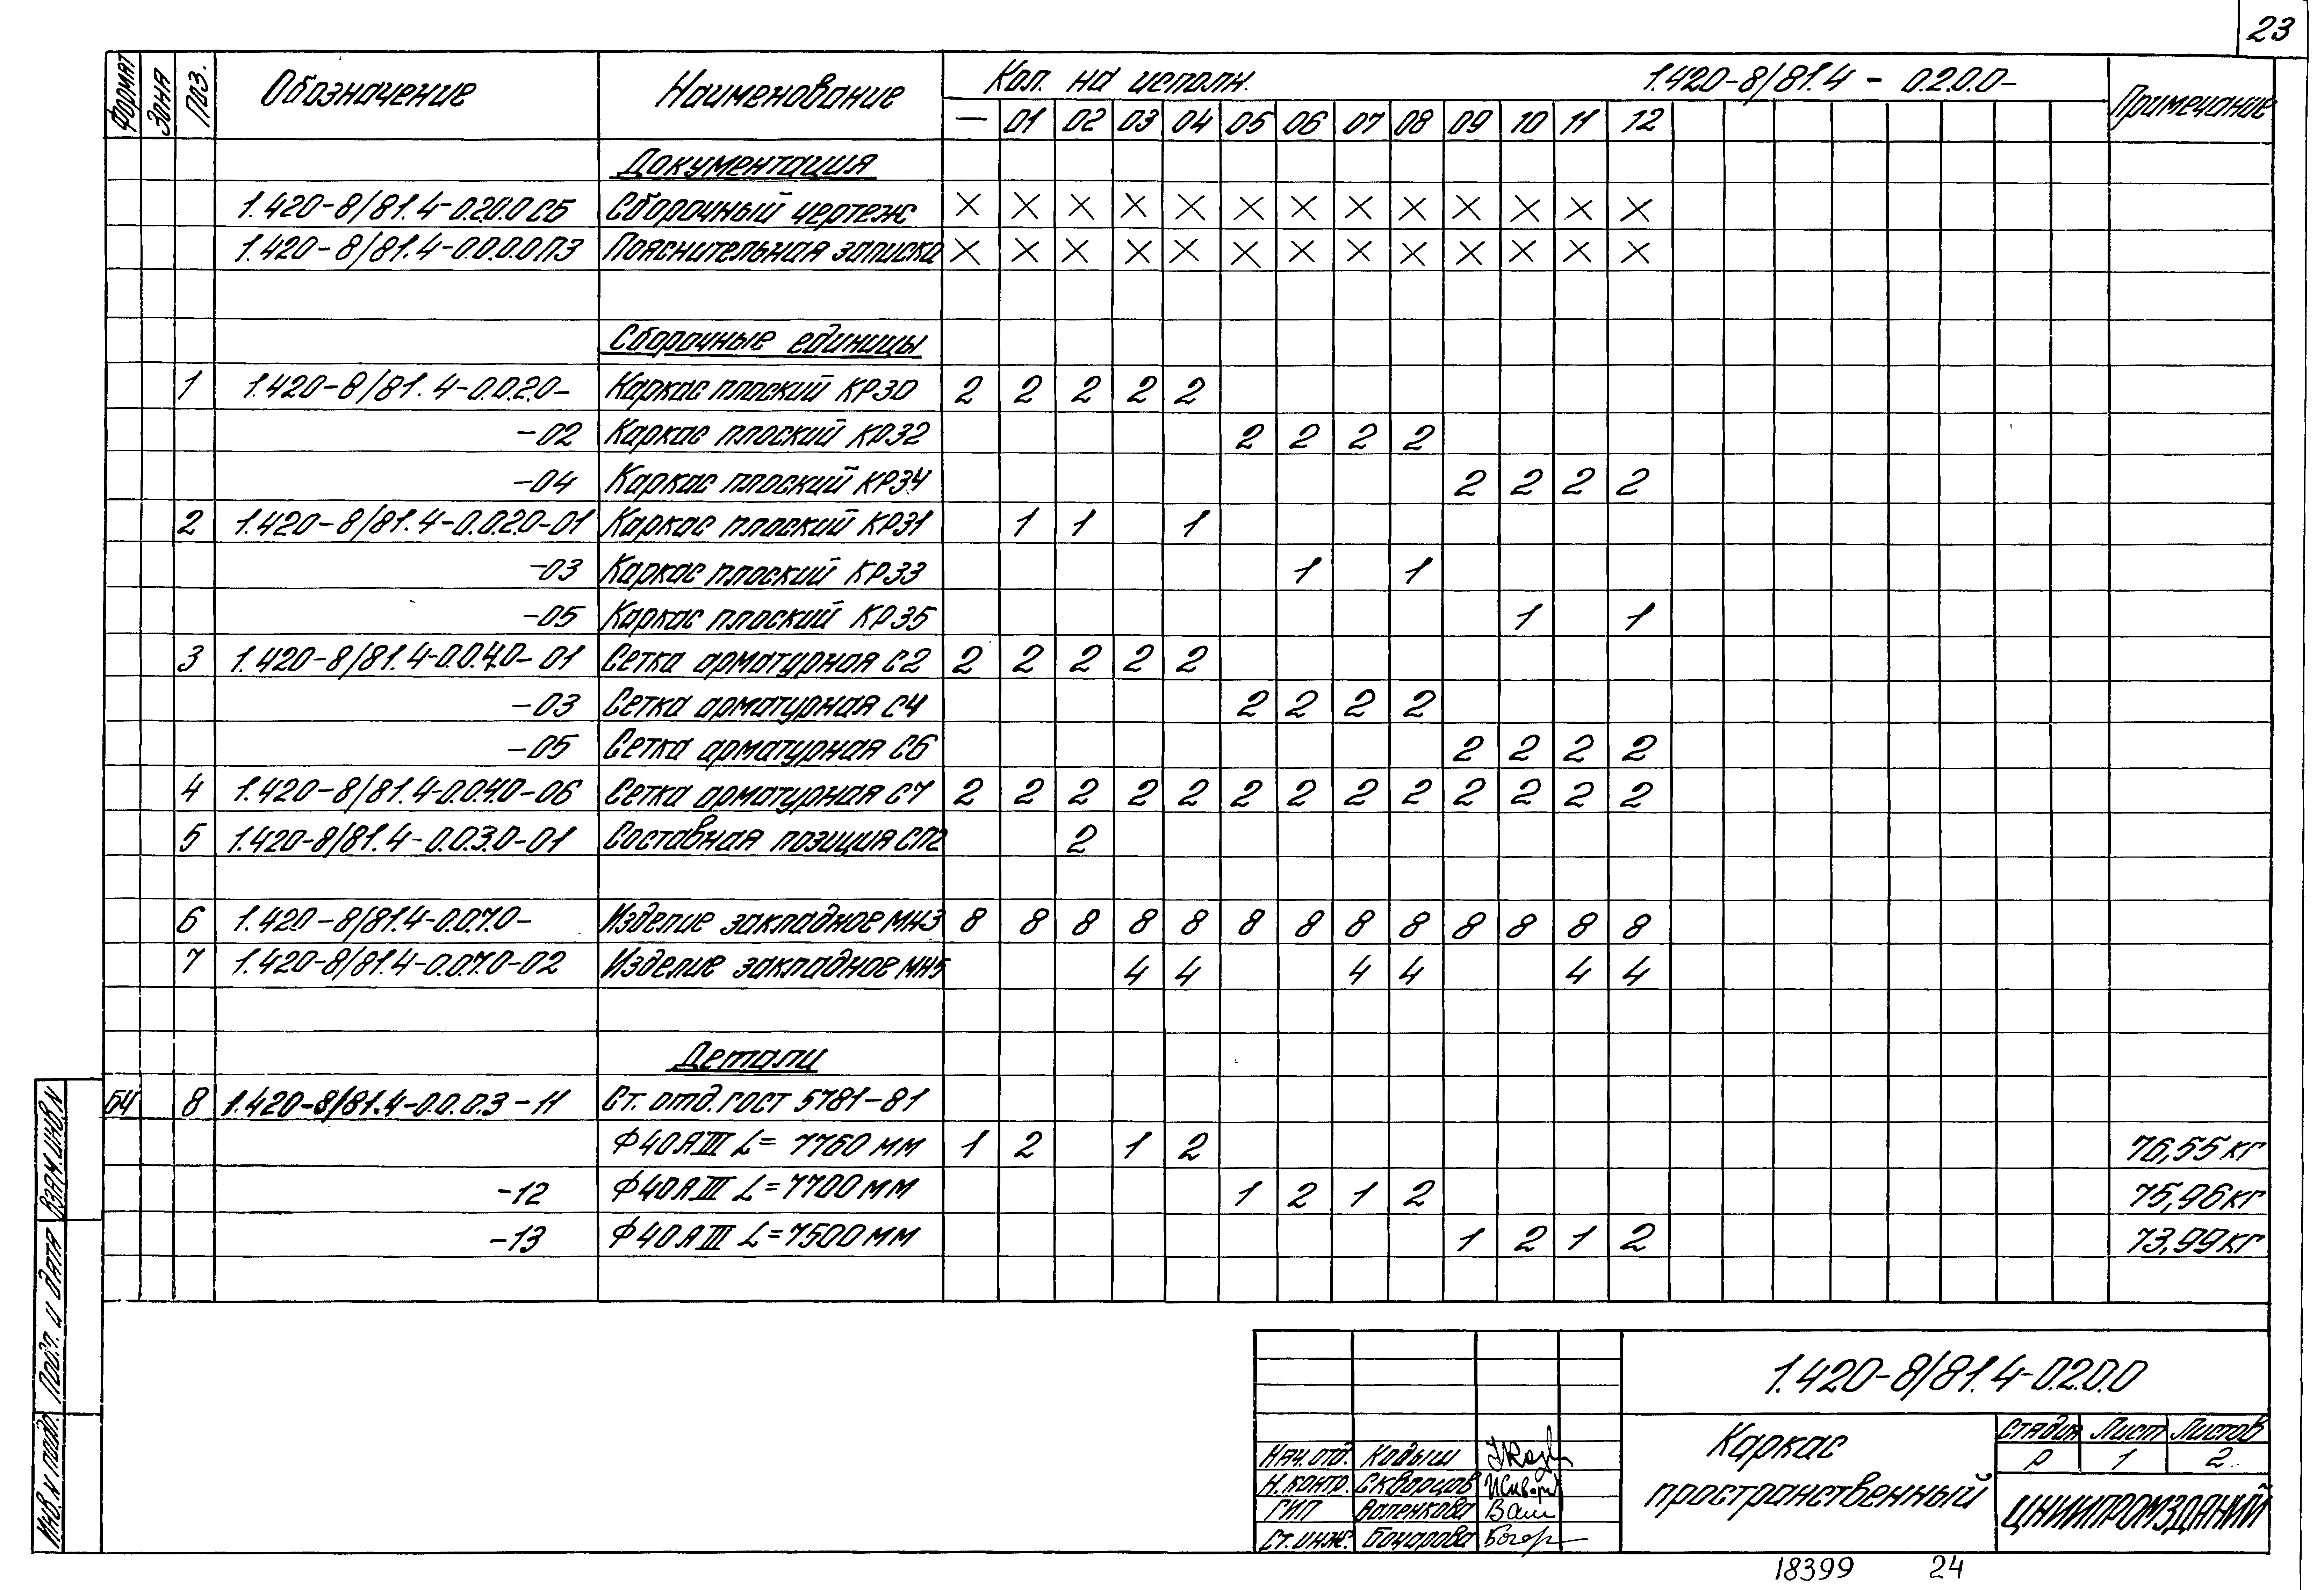 23
Формат Зона Поз. Обозначение Наименование Кол. на исполн. 1.420-8/81.4 - 0.2.0.0- Примечание
— 01 02 03 04 05 06 07 08 09 10 11 12
Документация
1.420-8/81.4-0.2.0.0СБ Сборочный чертеж × × × × × × × × × × × × ×
1.420-8/81.4-0.0.0.0ПЗ Пояснительная записка × × × × × × × × × × × × ×
Сборочные единицы
1 1.420-8/81.4-0.0.2.0- Каркас плоский КР30 2 2 2 2 2
-02 Каркас плоский КР32 2 2 2 2
-04 Каркас плоский КР34 2 2 2 2
2 1.420-8/81.4-0.0.2.0-01 Каркас плоский КР31 1 1 1
-03 Каркас плоский КР33 1 1
-05 Каркас плоский КР35 1 1
3 1.420-8/81.4-0.0.4.0-01 Сетка арматурная С2 2 2 2 2 2
-03 Сетка арматурная С4 2 2 2 2
-05 Сетка арматурная С6 2 2 2 2
4 1.420-8/81.4-0.0.4.0-06 Сетка арматурная С7 2 2 2 2 2 2 2 2 2 2 2 2 2
5 1.420-8/81.4-0.0.3.0-01 Составная позиция СП2 2
6 1.420-8/81.4-0.0.7.0- Изделие закладное МН3 8 8 8 8 8 8 8 8 8 8 8 8 8
7 1.420-8/81.4-0.0.7.0-02 Изделие закладное МН5 4 4 4 4 4 4
Детали
БЧ 8 1.420-8/81.4-0.0.0.3-11 Ст. отд. ГОСТ 5781-81
Ф40АIII L=7760мм 1 2 1 2 76,55кг
-12 Ф40АIII L=7700мм 1 2 1 2 75,96кг
-13 Ф40АIII L=7500мм 1 2 1 2 73,99кг
Взам.инв.N
Подп. и дата
Инв.N подл.
1.420-8/81.4-0.2.0.0
Каркас пространственный
Стадия Лист Листов
Р 1 2
ЦНИИПРОМЗДАНИЙ
Нач.отд. Кодыш
Н.контр. Скворцов
ГИП Валенкова
Ст.инж. Бочарова
18399 24